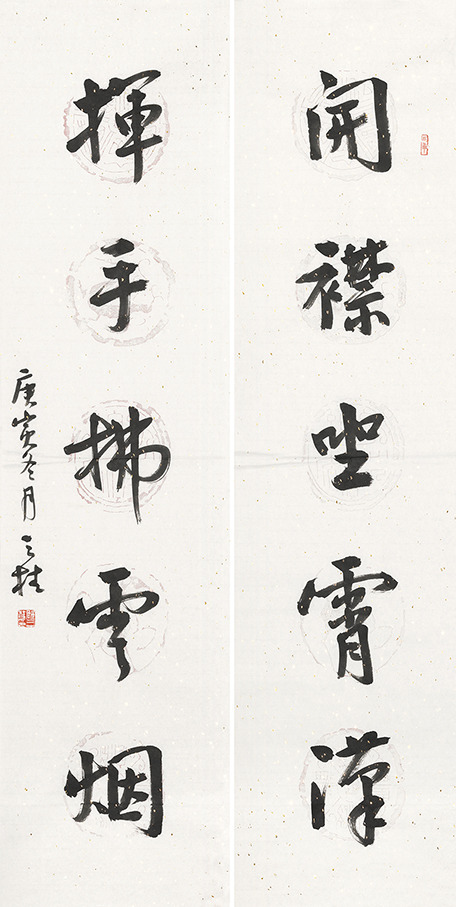 開襟坐霄漢
揮手拂雲烟
庚寅冬月之桂